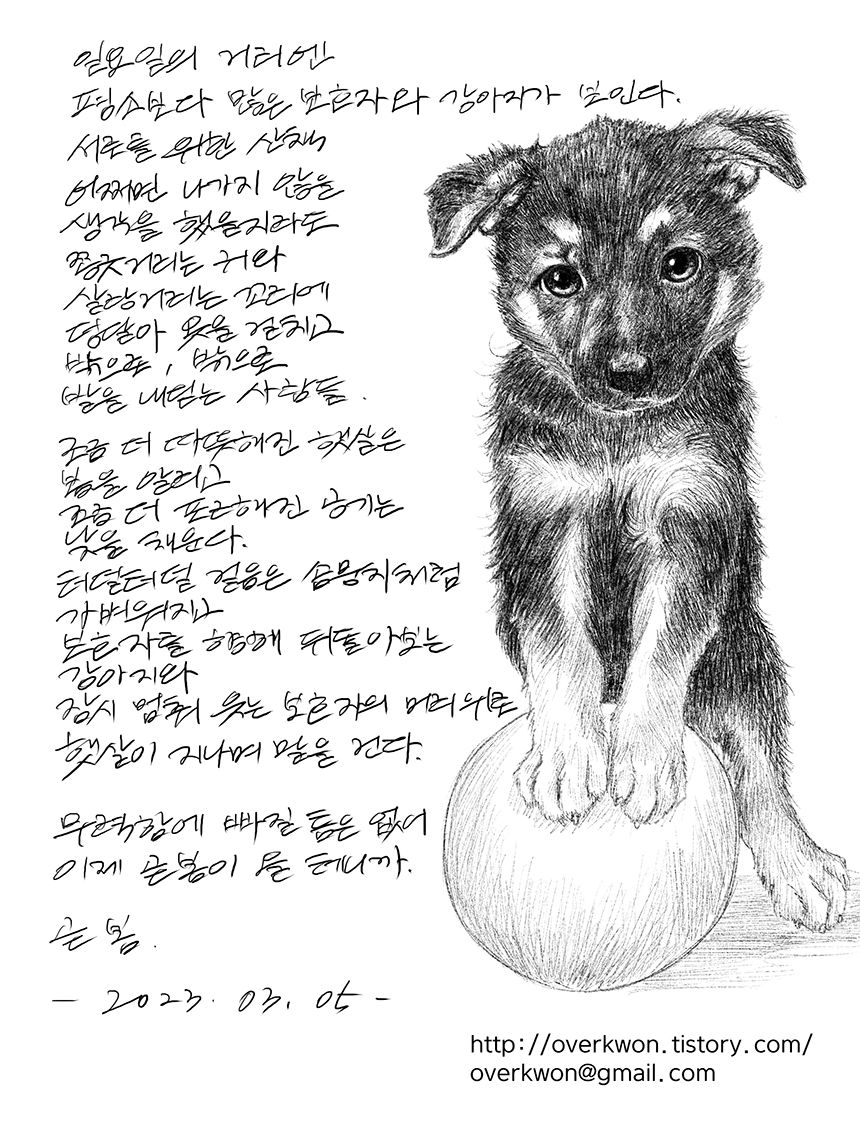 일요일의 거리엔
평소보다 많은 보호자와 강아지가 보인다.
서로를 위한 산책
어쩌면 나가지 않을
생각을 했을지라도
쫑긋거리는 귀와
살랑거리는 꼬리에
덩달아 옷을 걸치고
밖으로, 밖으로
발을 내딛는 사람들.
조금 더 따뜻해진 햇살은
봄을 알리고
조금 더 포근해진 공기는
낮을 채운다.
터덜터덜 걸음은 솜뭉치처럼
가벼워지고
보호자를 향해 뒤돌아보는
강아지와
잠시 멈춰 웃는 보호자의 머리위로
햇살이 지나며 말을 건다.
무력함에 빠질 틈은 없어
이제 곧 봄이 올 테니까.
곧 봄.
- 2023. 03. 05 -
http://overkwon.tistory.com/
overkwon@gmail.com